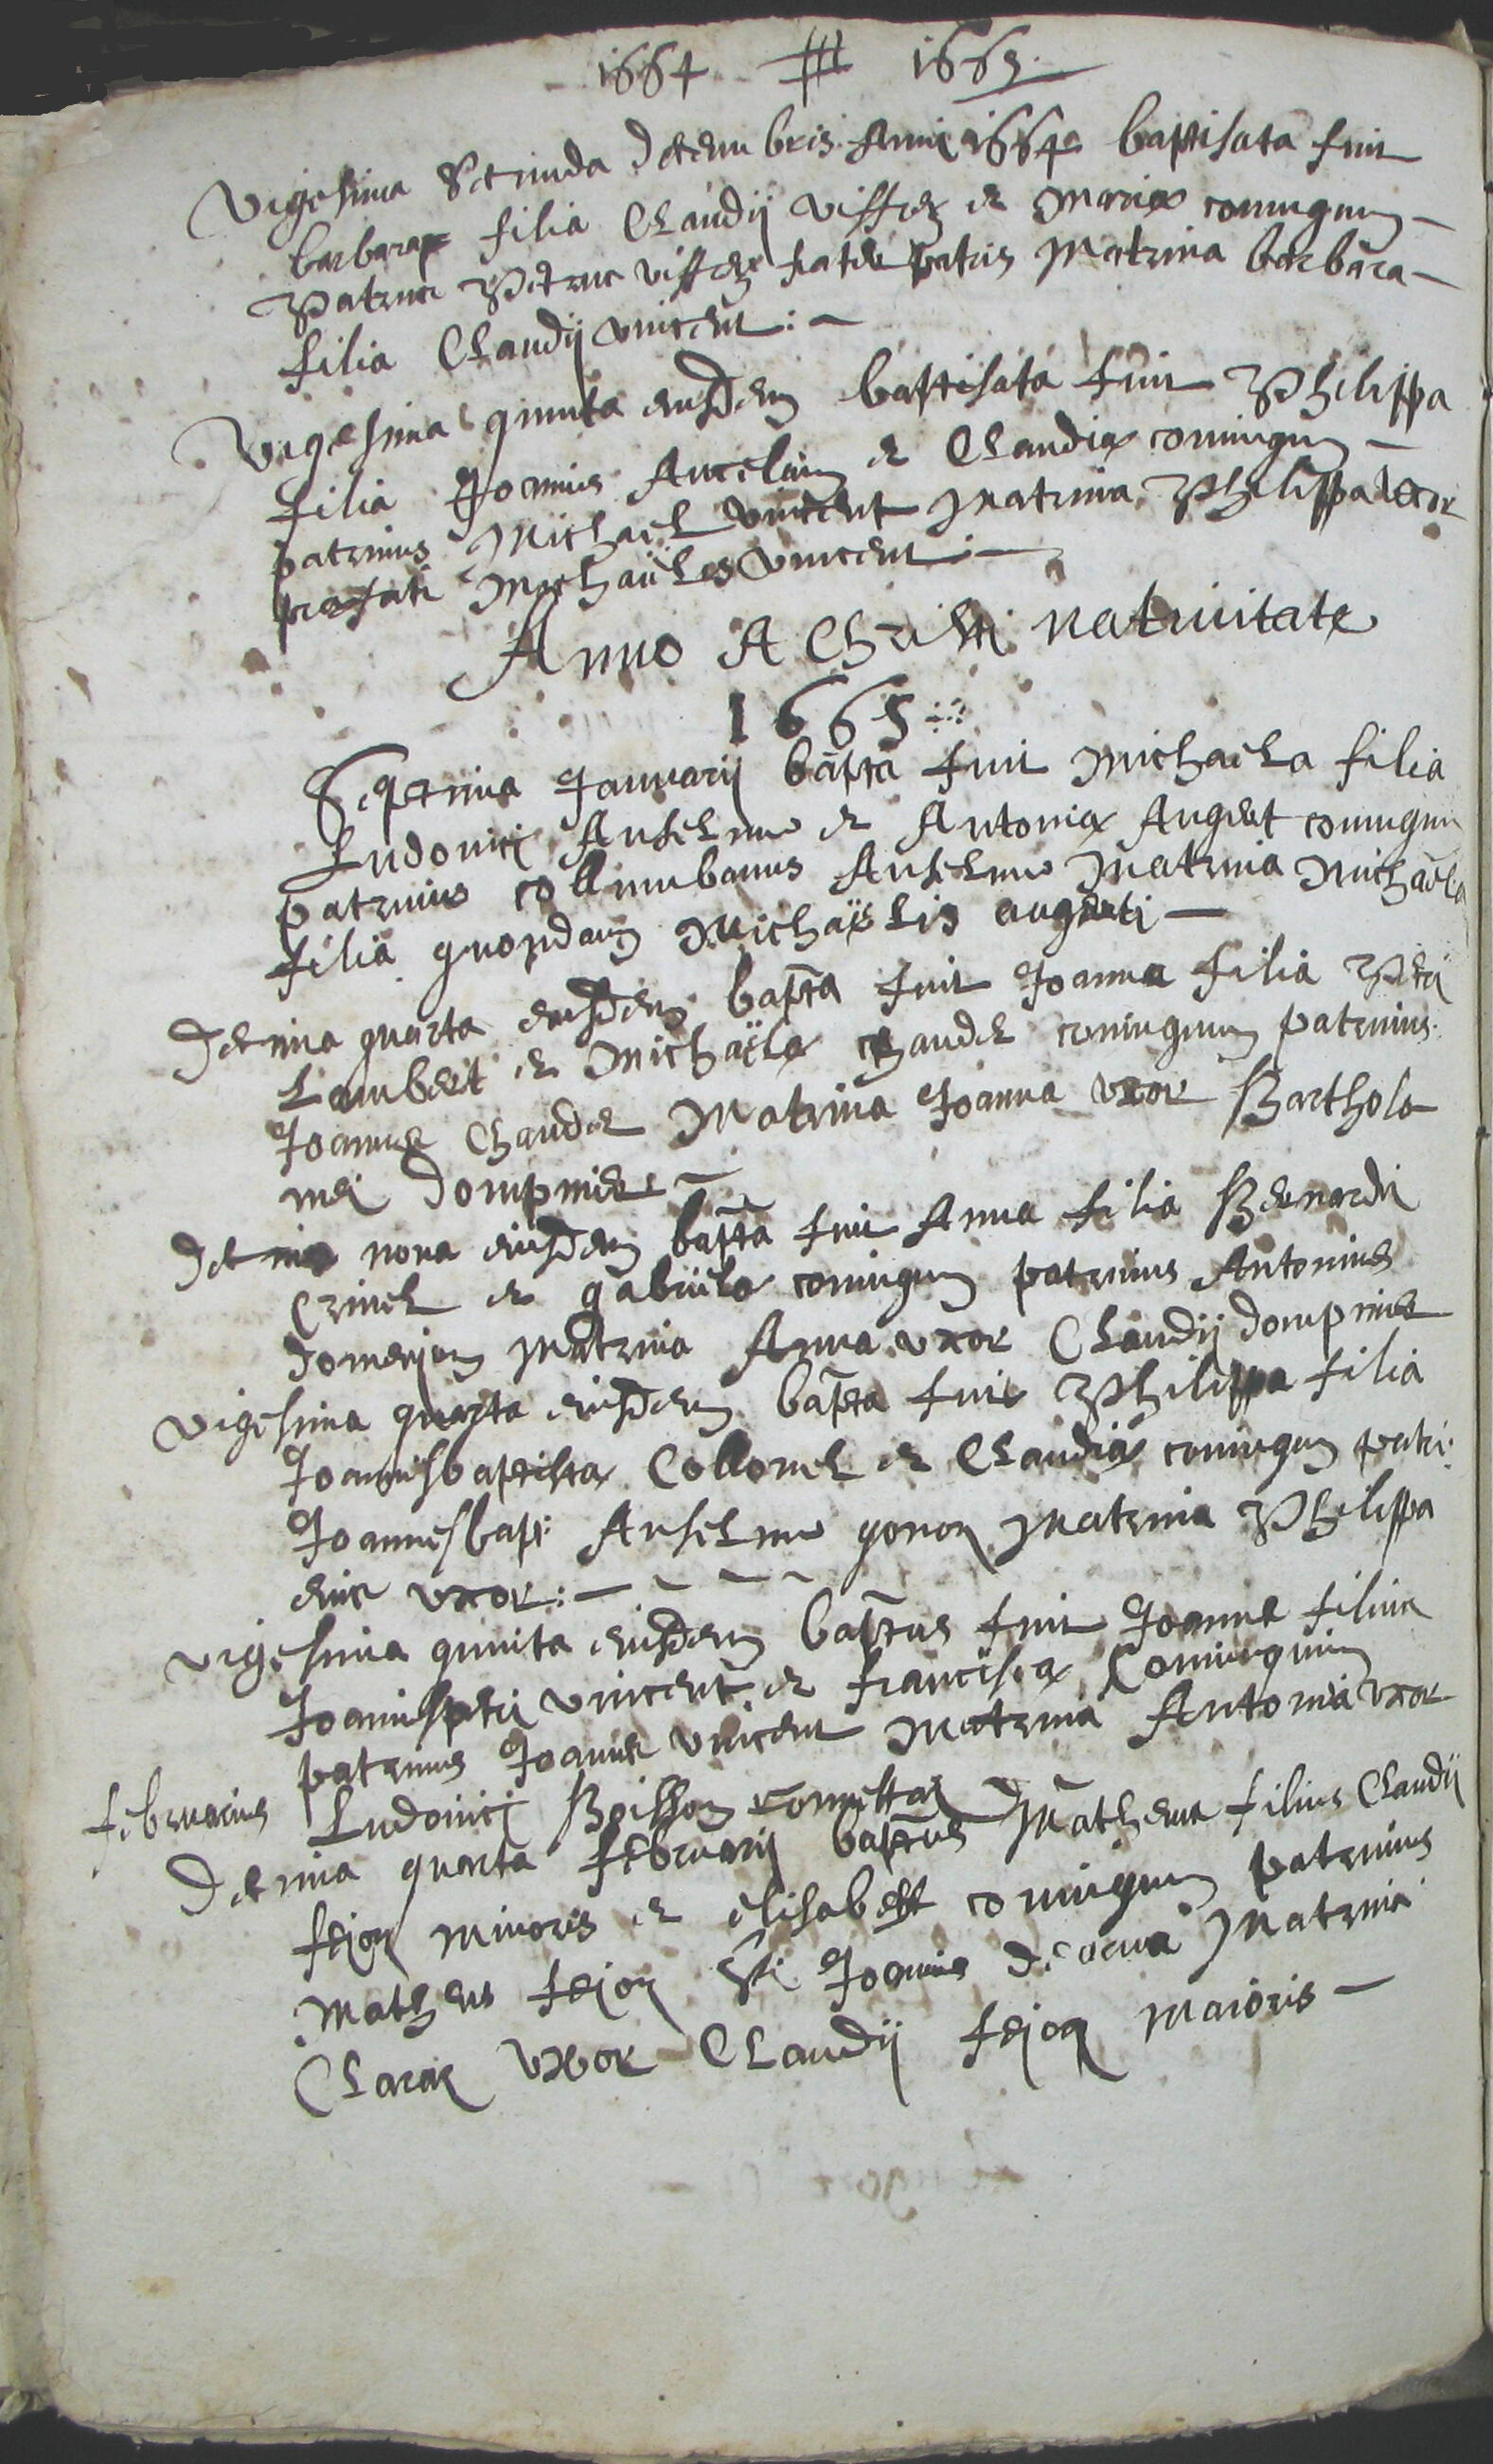 1664 1665
Vigesima Secunda decembris Anni 1664 baptisata fuit
barbara filia Claudij Viffez et Mariæ coniugum
Patrinus Petrus Viffez frater patris Matrina barbara
filia Claudij Vincent :
Vigesima quinta eiusdem baptisata fuit Philippa
filia Joannis Ancelain et Claudiæ coniugum
patrinus Michael Vincent Matrina Philippa Uxor
præfati Michaëles Vincent :
Anno A Christi natiuitate
1665
Septima Januarij bapta fuit Michaela filia
Ludouici Anselme et Antoniæ Auget coniugum
patrinus collumbanus Anselme Matrina Michaëla
filia quondam Michaëlis augeti
Decima quarta eiusdem bapta fuit Joanna filia Petri
Lambert et Michaëlæ chaudet coniugum patrinus
Joannes Chaudet Matrina Joanna Uxor Bartholo
mei dompmier
Decima nona eiusdem bapta fuit Anna filia Bernardi
Crinel et gabrielæ coniugum patrinus Antonius
domerjon Matrina Anna uxor Claudij dompmier
Vigesima quarta eiusdem bapta fuit Philippa filia
Joannisbaptistæ Collomel et Claudiæ coniugum patri:
Joannesbap: Anselme gonon Matrina Philippa
eius uxor :
Vigesima quinta eiusdem baptus fuit Joannes filius
Joannispetri Vincent et franciscæ Coniugum
patrinus Joannes Vincent Matrina Antonia uxor
februarius Ludouici Boisson
Decima quarta februarij baptus Matheus filius Claudij
fejon minoris et elisabeht coniugum patrinus
Matheus fejon Sti Joannis Matrina
Clara Uxor Claudij fejon maioris